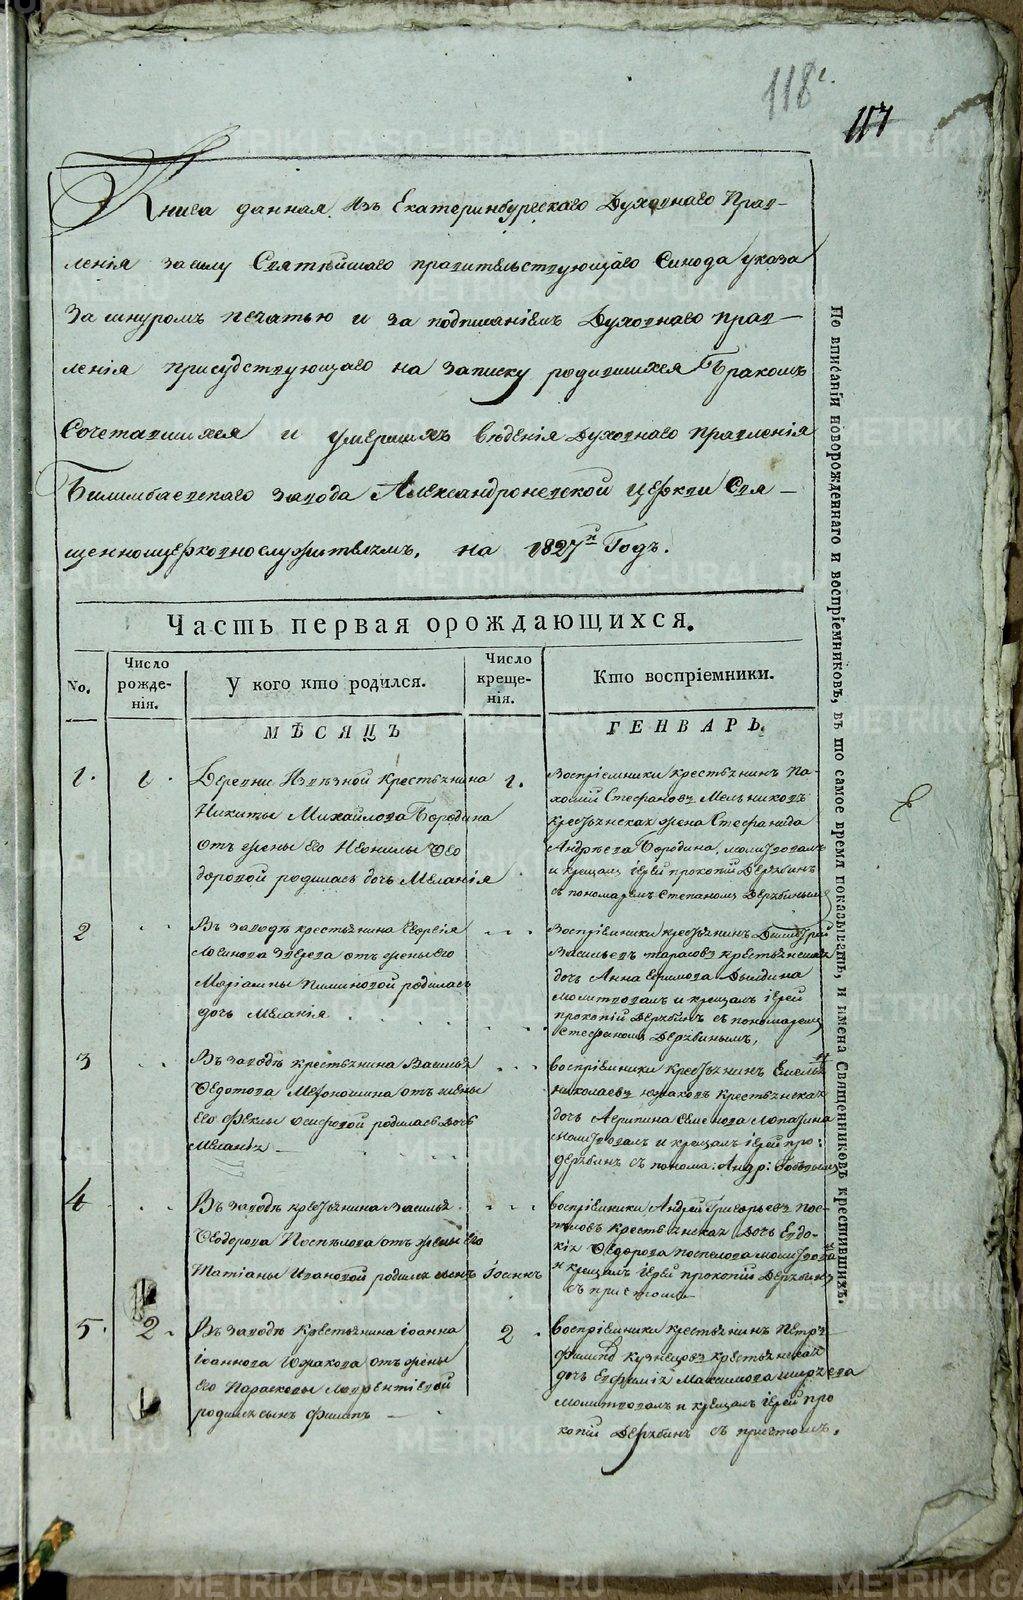 118
117
Книга данная изъ Екатеринбургскаго Духовнаго Прав-
ленія за силу Святѣйшаго правительствующаго Синода указа
За шнуромъ печатью и за подписаніемъ Духовнаго прав-
ленія присудствующаго на записку родившихся Бракомъ
Сочетавшихся и умершихъ вѣденія Духовнаго правленія
Билимбаевскаго завода Александроневской церкви Свя-
щенноцерковнослужителямъ, на 1827й Годъ.
Часть первая орождающихся.
No.
Число рожде-нія.
У кого кто родился.
Число креще-нія.
Кто воспріемники.
МѢСЯЦЪ
ГЕНВАРЬ.
1. 1.
Деревни Извѣзной крестьянина
Никиты Михайлова Бородина
отъ жены его Неонилы Ѳео
доровой родилась дочь Меланія
1.
Воспріемники крестьянинъ Па-
хомій Стефановъ Мельниковъ
крестьянская жена Стефанида
Андрѣева Бородина, молитвовалъ
и крещалъ іерей прокопій Дерябинъ
съ пономаремъ Степаномъ Дерябинымъ
2
Въ заводѣ крестьянина Георгія
Логинова Зверева отъ жены его
Маріамны Пиминовой родилась
дочь Меланія
Воспріемники крестьянинъ Димитрій
Васильевъ тарасовъ крестьянская
дочь Анна Ефимова Дылдина
молитвовалъ и крещалъ іерей
прокопій Дерябинъ съ пономаремъ
Стефаномъ Дерябинымъ,
3
Въ заводѣ крестьянина Василья
Ѳедотова Мефоношина отъ жены
его Феклы осиповой родилась дочь
Меланія
воспріемники крестьянинъ Емельянъ
николаевъ южаковъ крестьянская
дочь Агрипина Семенова лопатина
молитвовалъ и крещалъ іерей про:
дерябинъ съ понома: Андр:
4
Въ заводѣ крестьянина Василья
Ѳеодорова Поспѣлова отъ жены его
Татіаны Ивановой родился сынъ Іоаннъ
воспріемники Андрей Григорьевъ пос-
пѣловъ крестьянская дочь Евдо-
кія Ѳедорова поспелова молитвовалъ
и крещалъ іерей прокопій Дерябинъ
съ притомъ
5. 2.
Въ заводѣ крестьянина іоанна
іоаннова Южакова отъ жены
его Параскевы Лаврентіевой
родился сынъ Филипъ
2.
воспріемники крестьянинъ Петръ
Филипъ кузнецовъ крестьянская
дочь Евфимія Максимова ширяева
молитвовалъ и крещалъ іерей про
копій Дерябинъ съ притомъ.
По вписаніи новорожденнаго и воспріемниковъ, въ то самое время показывать, и имена Священниковъ крестившихъ.
METRIKI.GASO-URAL.RU